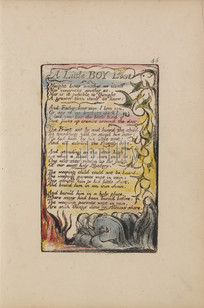 A Little BOY Lost
Nought loves another as itself
Nor venerates another so.
Nor is it possible to Thought
A greater than itself to know:
And Father, how can I love you,
Or any of my brothers more?
I love you like the little bird
That picks up crumbs around the door.
The Priest sat by and heard the child.
In trembling zeal he siez'd his hair:
He led him by his little coat:
And all admir'd the Priestly care.
And standing on the altar high,
Lo what a fiend is here! said he:
One who sets reason up for judge
Of our most holy Mystery.
The weeping child could not be heard.
The weeping parents wept in vain:
They strip'd him to his little shirt.
And bound him in an iron chain.
And burn'd him in a holy place,
Where many had been burn'd before:
The weeping parents wept in vain.
Are such things done on Albions shore.